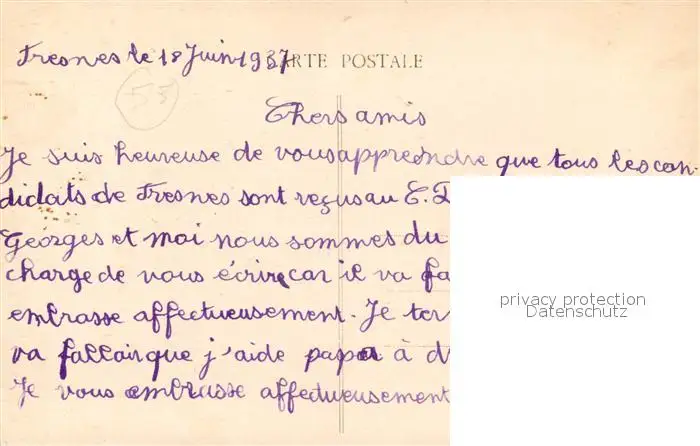 Fresnes le 18 Juin 1937 CARTE POSTALE
55
Chers amis
Je suis heureuse de vous apprendre que tous les can-
didats de Fresnes sont reçus au C.
Georges et moi nous sommes du
charge de vous écrire car il va fa
embrasse affectueusement. Je ter
va falloir que j'aide papa à d
Je vous embrasse affectueusement
privacy protection
Datenschutz